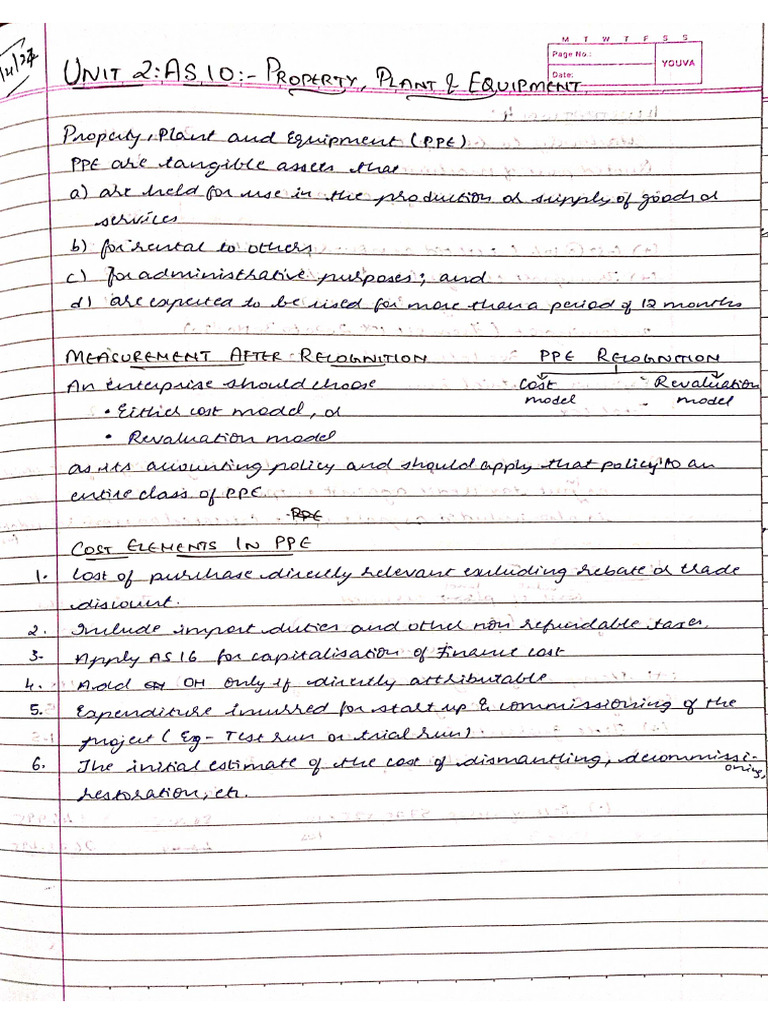 M T W T F S S
Page No.:
YOUVA
Date:
UNIT 2: AS 10:- PROPERTY, PLANT & EQUIPMENT
Property, Plant and Equipment (PPE)
PPE are tangible assets that
a) are held for use in the production or supply of goods or
services
b) for rental to others,
c) for administrative purposes; and
d) are expected to be used for more than a period of 12 months
MEASUREMENT AFTER RECOGNITION PPE RECOGNITION
An enterprise should choose Cost Revaluation
model model
• Either cost model, or
• Revaluation model
as its accounting policy and should apply that policy to an
entire class of PPE.
PPE
COST ELEMENTS IN PPE
1. Cost of purchase directly relevant excluding rebate or trade
discount.
2. Include import duties and other non refundable taxes.
3. Apply AS 16 for capitalisation of Finance cost
4. Add OH only if directly attributable
5. Expenditure incurred for start up & commissioning of the
project (Eg- Test run or trial run).
6. The initial estimate of the cost of dismantling, decommissi-
oning,
restoration, etc.